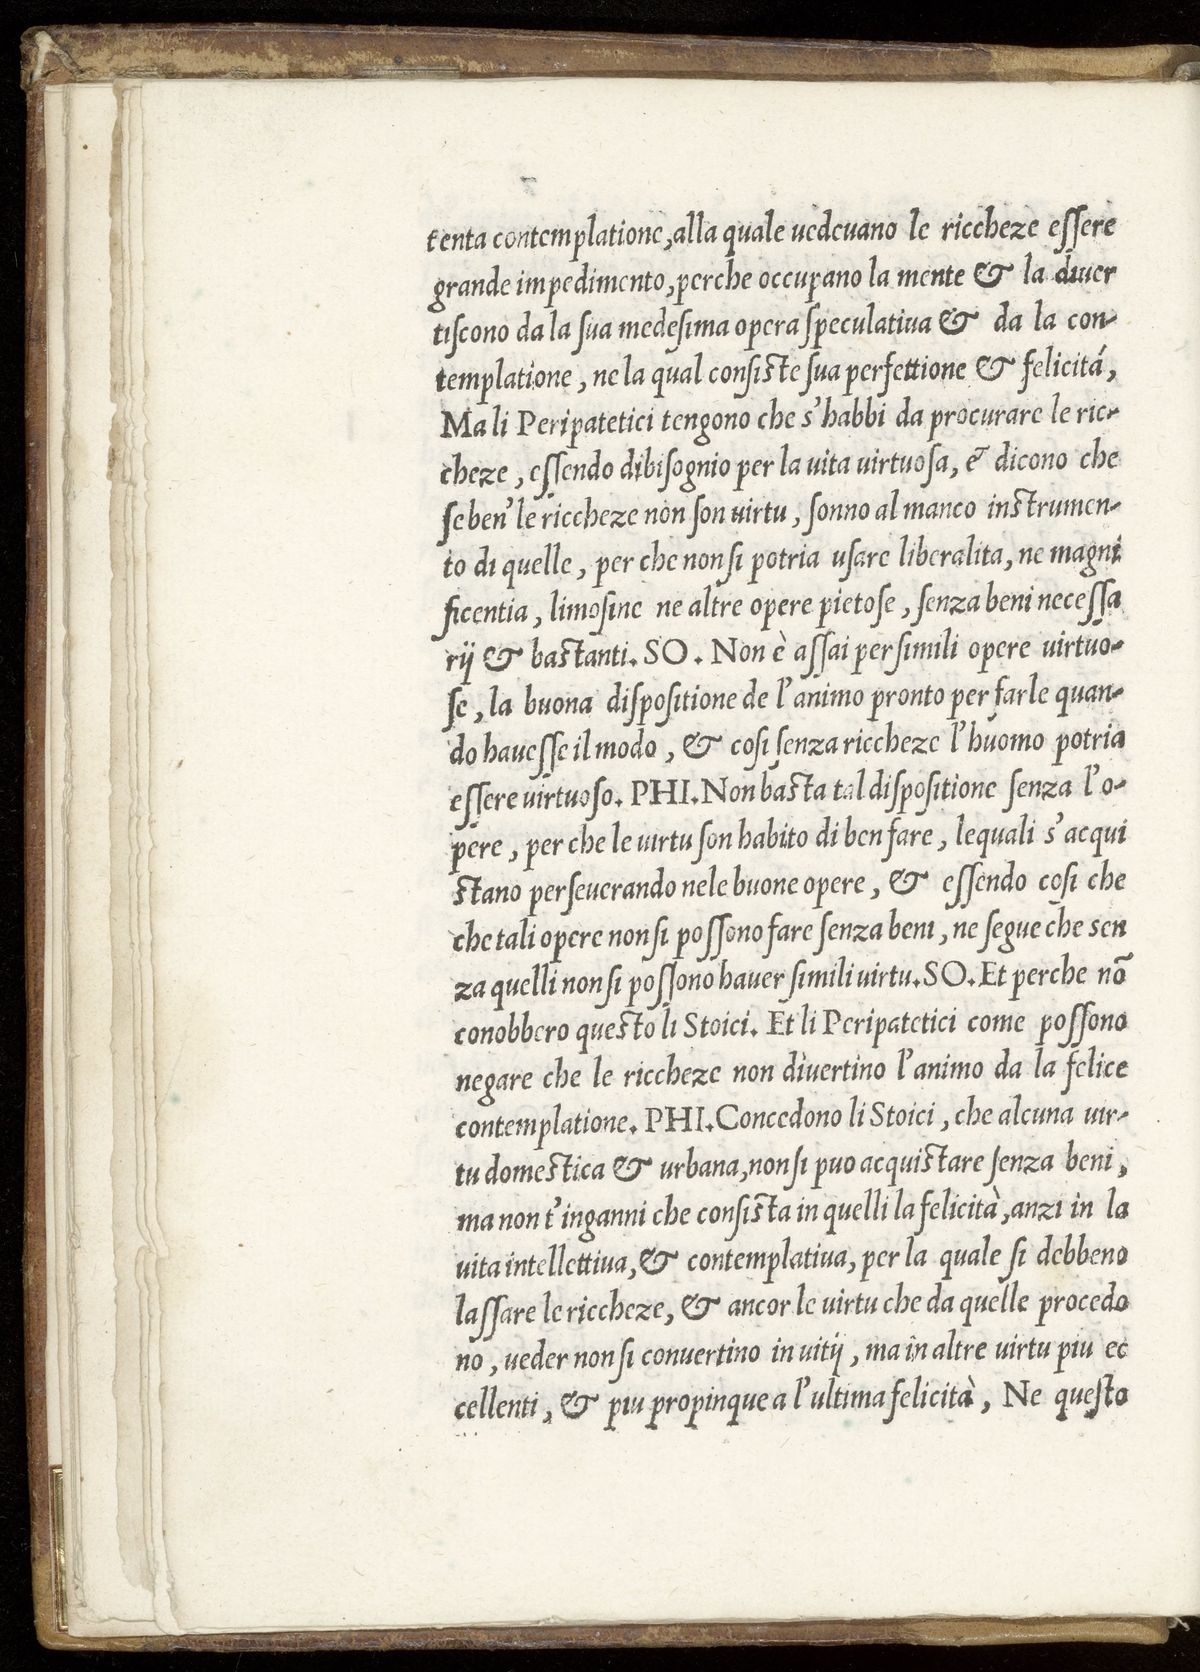 tenta contemplatione, alla quale uedeuano le riccheze eſſere
grande impedimento, perche occupano la mente & la diuer
tiſcono da la ſua medeſima opera ſpeculatiua & da la con-
templatione, ne la qual conſiſte ſua perfettione & felicitá,
Ma li Peripatetici tengono che s'habbi da procurare le ric-
cheze, eſſendo dibiſognio per la uita uirtuoſa, & dicono che
ſeben' le riccheze non ſon uirtu, ſonno al manco inſtrumen-
to di quelle, per che non ſi potria uſare liberalita, ne magni
ficentia, limoſine ne altre opere pietoſe, ſenza beni neceſſa
rij & baſtanti. SO. Non è aſſai per ſimili opere uirtuo-
ſe, la buona diſpoſitione de l'animo pronto per farle quan-
do haueſſe il modo, & coſi ſenza riccheze l'huomo potria
eſſere uirtuoſo. PHI. Non baſta tal diſpoſitione ſenza l'o-
pere, per che le uirtu ſon habito di ben fare, lequali s'acqui
ſtano perſeuerando nele buone opere, & eſſendo coſi che
che tali opere non ſi poſſono fare ſenza beni, ne ſegue che sen
za quelli non ſi poſſono hauer ſimili uirtu. SO. Et perche nõ
conobbero queſto li Stoici. Et li Peripatetici come poſſono
negare che le riccheze non diuertino l'animo da la felice
contemplatione. PHI. Concedono li Stoici, che alcuna uir-
tu domeſtica & urbana, non ſi puo acquiſtare ſenza beni,
ma non t'inganni che conſiſta in quelli la felicità, anzi in la
uita intellettiua, & contemplatiua, per la quale ſi debbeno
laſſare le riccheze, & ancor le uirtu che da quelle procedo
no, ueder non ſi conuertino in uitij, ma in altre uirtu piu ec
cellenti, & piu propinque a l'ultima felicità, Ne queſto